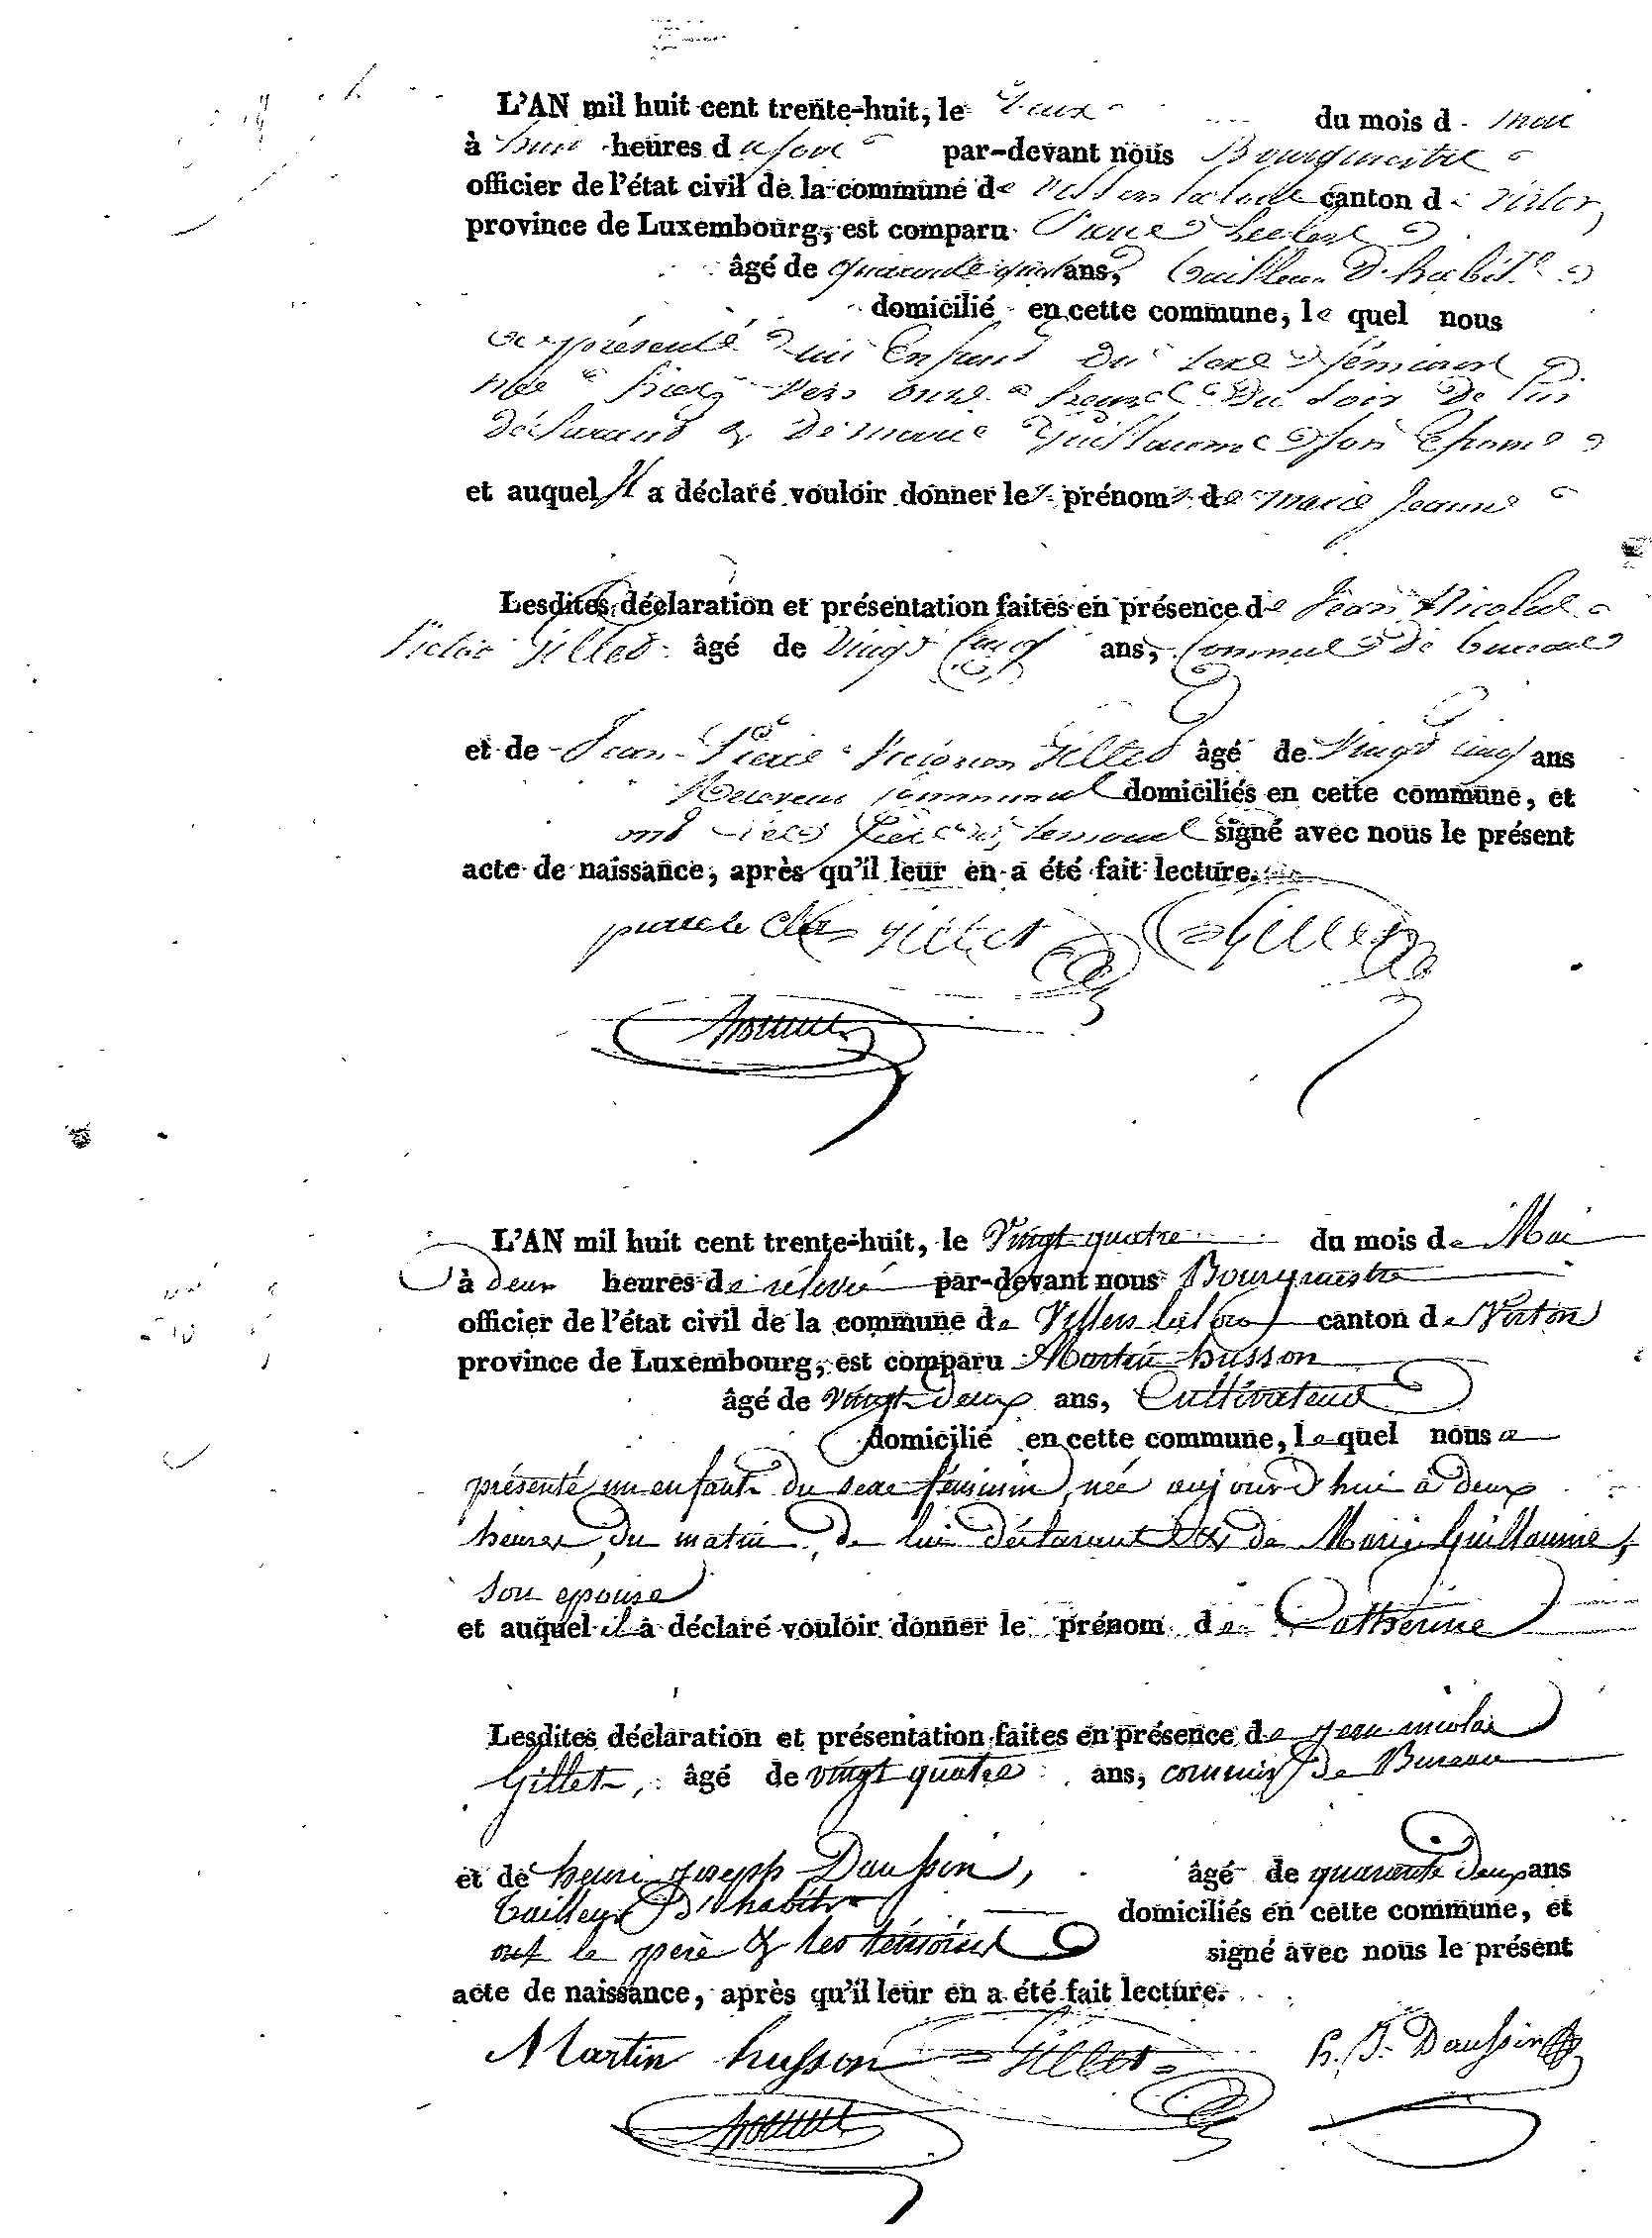 L'AN mil huit cent trente-huit, le deux du mois de mai
à huit heures du soir par-devant nous Bourgmestre
officier de l'état civil de la commune de Villers la loue canton de Virton
province de Luxembourg, est comparu Pierre Leclere
âgé de quarante ans, tailleur d'habits
domicilié en cette commune, le quel nous
a présenté un Enfant du sexe féminin
née hier vers onze heures du soir de lui
déclarant & de marie Guillaume son Epouse
et auquel Il a déclaré vouloir donner les prénoms de marie Jeanne
Lesdites déclaration et présentation faites en présence de Jean Nicolas
Victor Gillet âgé de vingt cinq ans, Commis de bureau
et de Jean Pierre Gillet âgé de Vingt cinq ans
Receveur communal domiciliés en cette commune, et
ont signé avec nous le présent
acte de naissance, après qu'il leur en a été fait lecture.
pierre le Clere Gillet Gillet
L'AN mil huit cent trente-huit, le Vingt quatre du mois de Mai
à deux heures de rélevée par-devant nous Bourgmestre
officier de l'état civil de la commune de Villers la loue canton de Virton
province de Luxembourg, est comparu Martin husson
âgé de vingt deux ans, Cultivateur
domicilié en cette commune, le quel nous a
présenté un enfant du sexe féminin, née aujourd'hui à deux
heures du matin, de lui déclarant & de Marie Guillaume,
son epouse
et auquel il a déclaré vouloir donner le prénom de Catherine
Lesdites déclaration et présentation faites en présence de jean nicolas
Gillet, âgé de vingt quatre ans, commis de Bureau
et de henri joseph Daussin, âgé de quarante deux ans
tailleur D'habits domiciliés en cette commune, et
ont le père & les témoins signé avec nous le présent
acte de naissance, après qu'il leur en a été fait lecture.
Martin husson Gillet h. J. Daussin